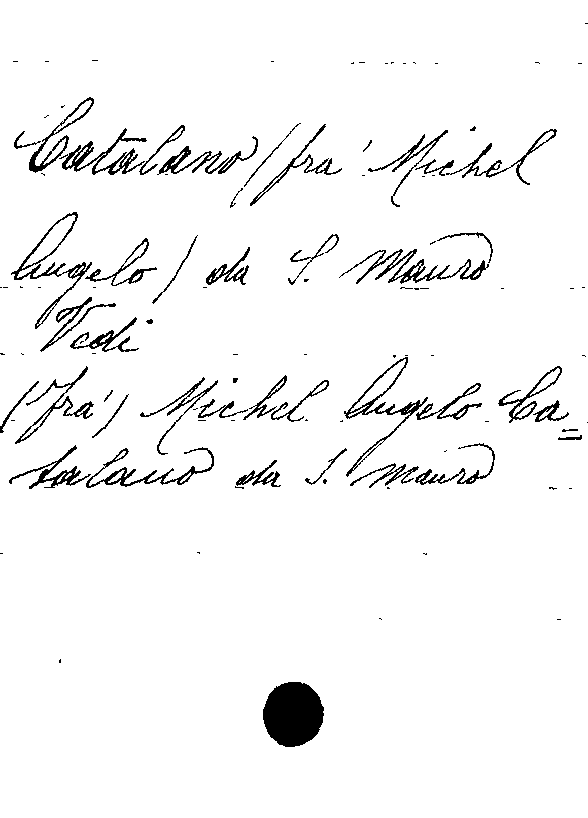 Catalano (fra' Michel
Angelo) da S. Mauro
Vedi
(Fra') Michel Angelo Ca=
talano da S. Mauro